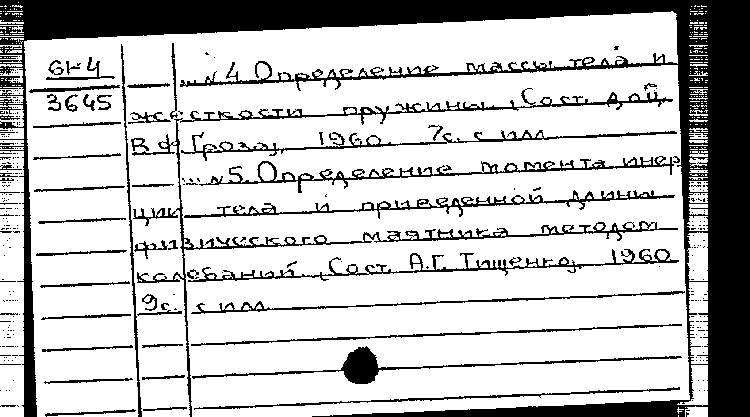 61-4
3645
... №4 Определение массы тела и
жесткости пружины. (Сост. доц.
В.Ф. Гроза). 1960. 7с. с илл
... №5. Определение момента инер
ции тела и приведенной длины
физического маятника методом
колебаний. (Сост. А.Г. Тищенко). 1960
9с. с илл